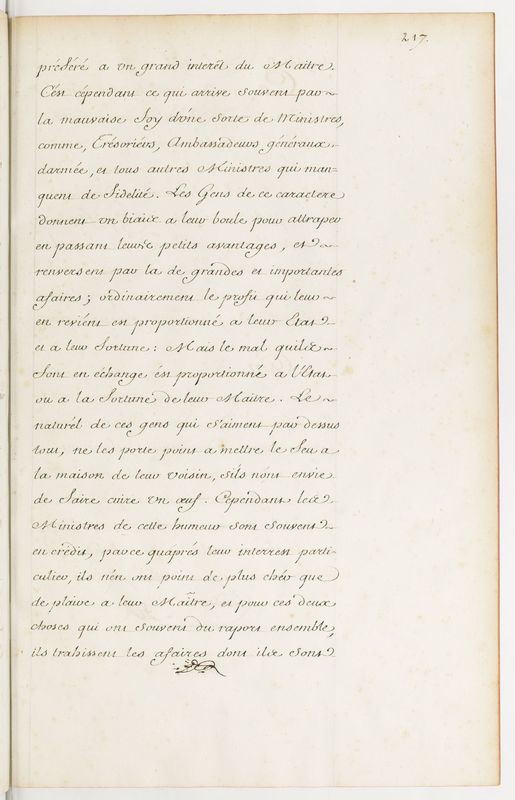 217.
préféré a un grand interêt du Maitre.
C'est cépendant ce qui arrive souvent par
la mauvaise foy d'une sorte de Ministres,
comme, Trésoriérs, Ambassadeurs, généraux
darmée, et tous autres Ministres qui man-
quent de fidelité. Les Gens de ce caractere
donnent un biaix a leur boule pour attraper
en passant leurs petits avantages, et
renversent par la de grandes et importantes
afaires; ordinairement le profit qui leur
en revient est proportionné a leur Etat
et a leur fortune: Mais le mal quils
font en échange ést proportionné a l'Etat
ou a la fortuné de leur Maitre. Le
naturél de ces gens qui s'aiment par dessus
tout, ne les porte point a mettre le feu a
la maison de leur voisin, s'ils n'ont envie
de faire cuire un œuf. Cépendant les
Ministres de cette humeur sont souvent
en crédit, parce quaprés leur interrest parti-
culier, ils n'en ont point de plus chér que
de plaire a leur Maître, et pour ces deux
choses qui ont souvent du raport ensemble,
ils trahissent les afaires dont ils sont